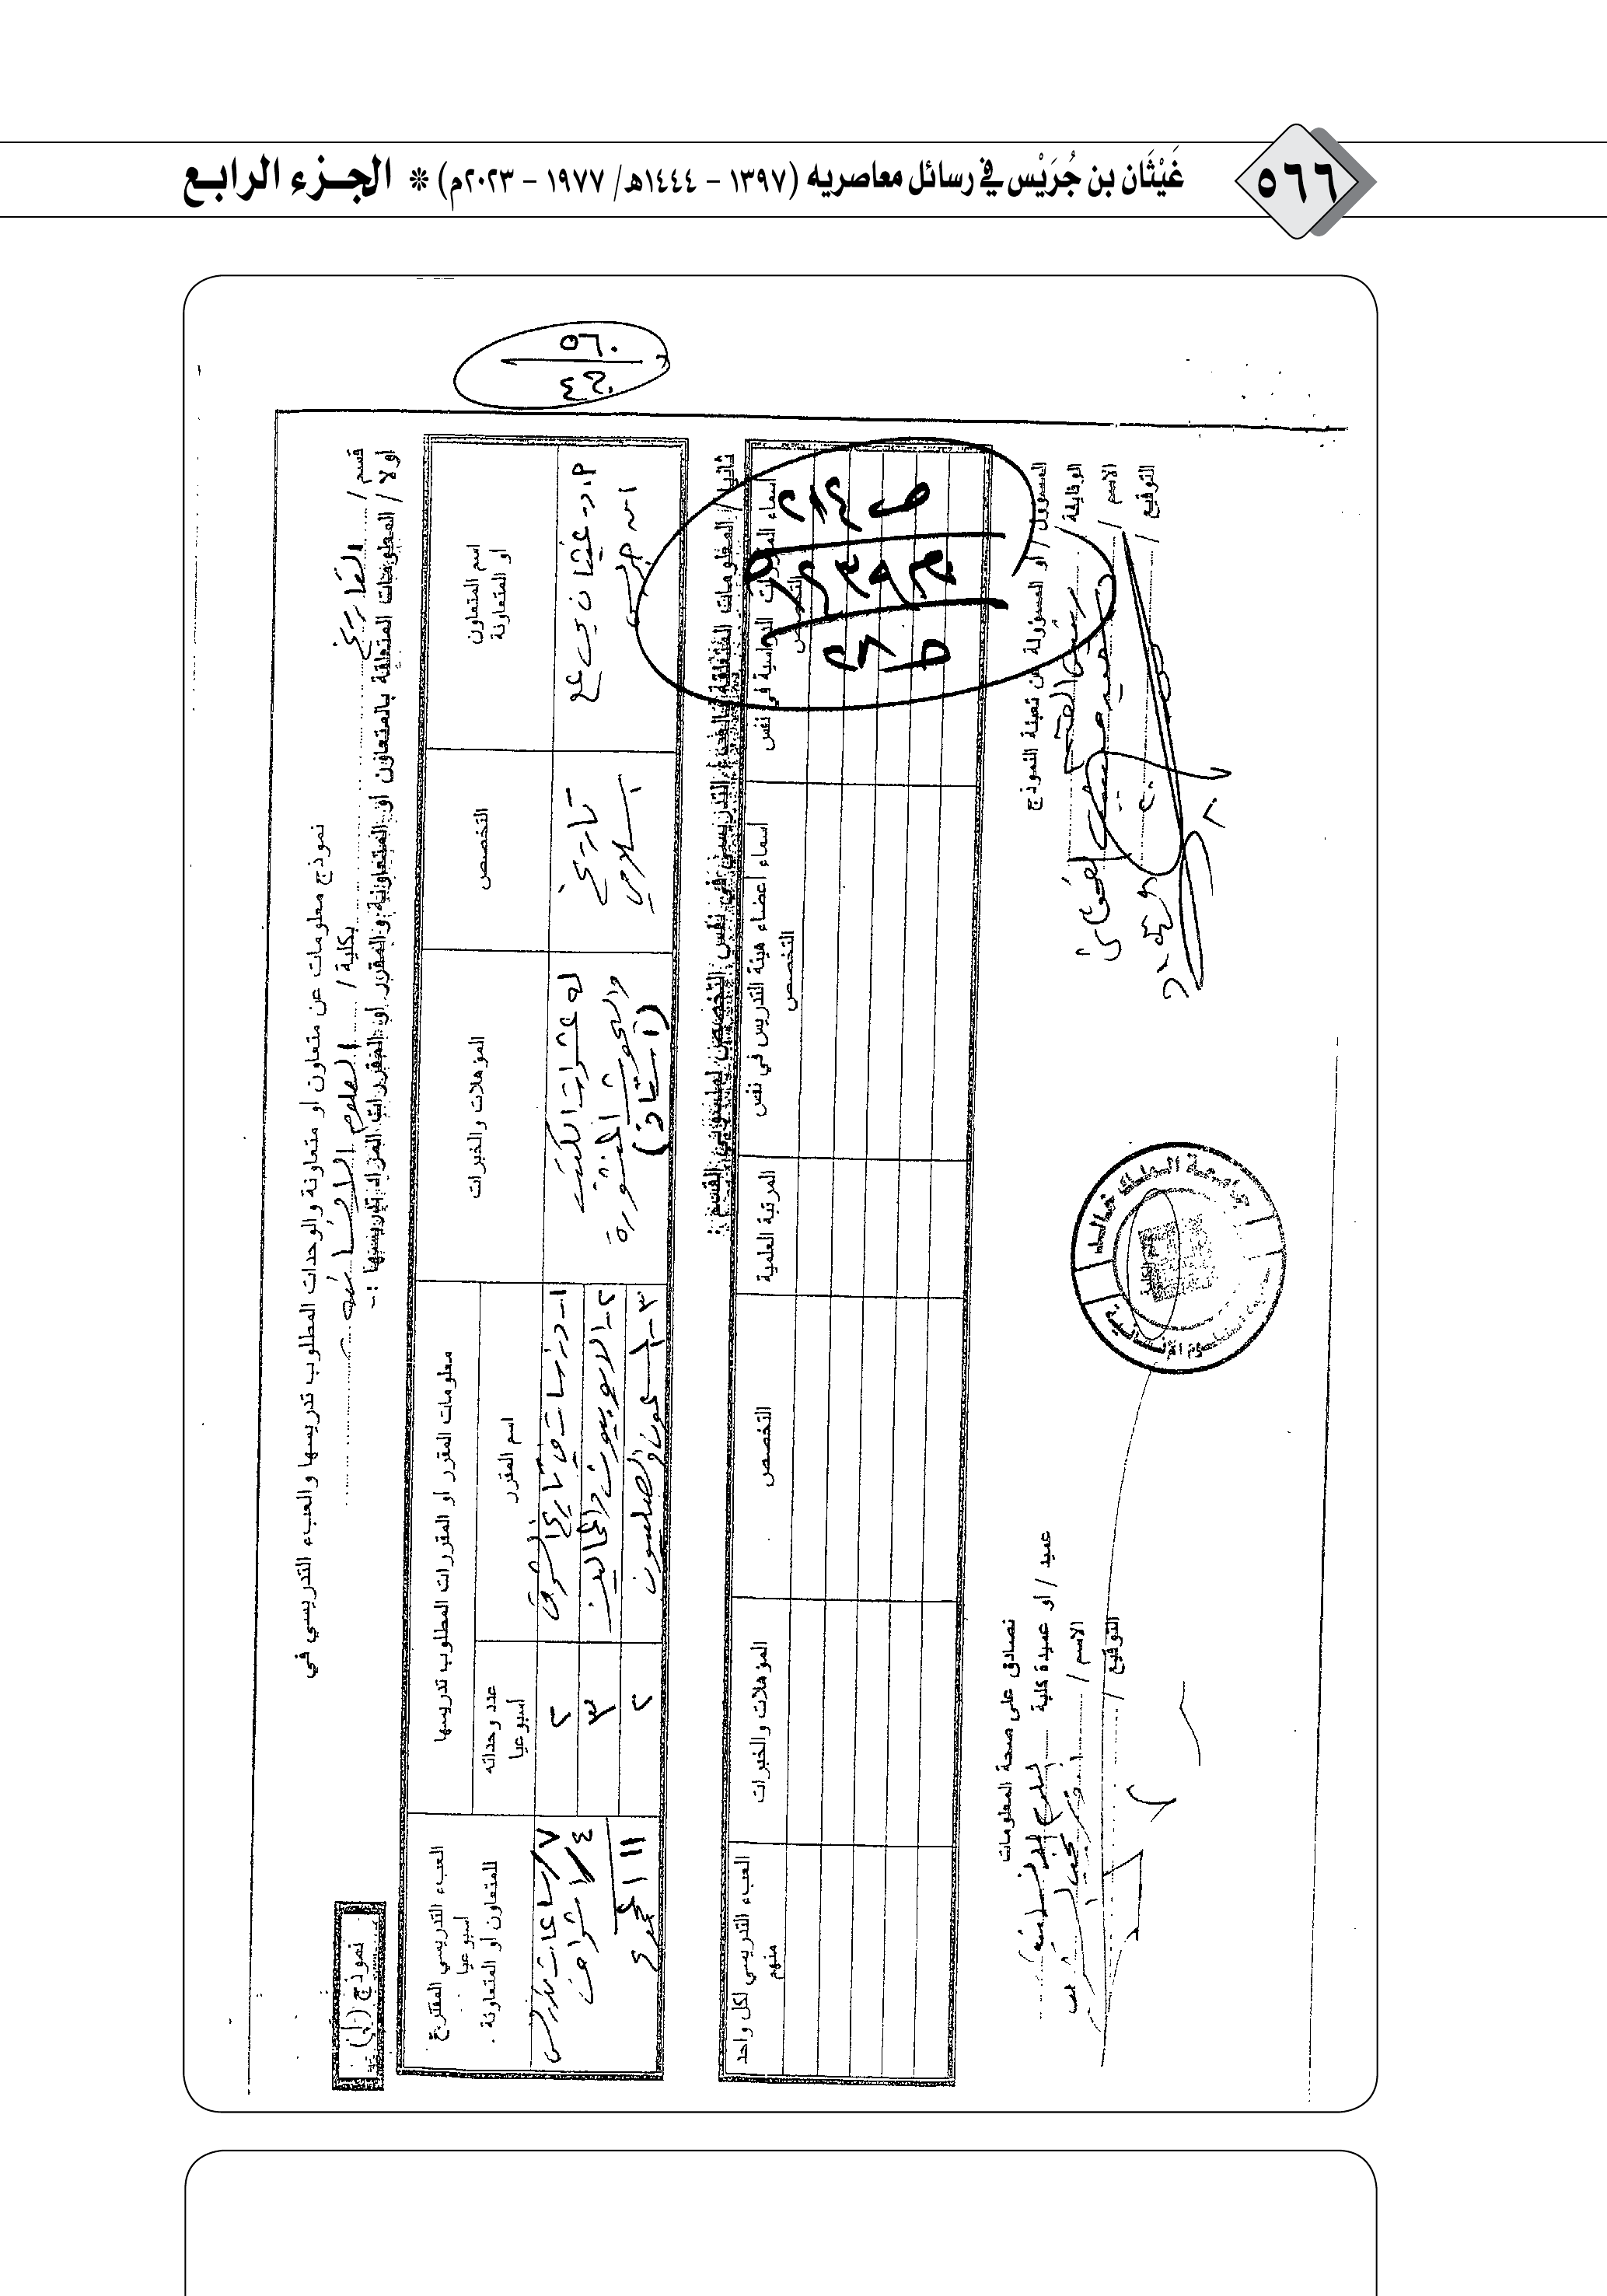 ٥٦٦
غَيْثَان بن جُرَيْس في رسائل معاصريه (١٣٩٧ - ١٤٤٤هـ/ ١٩٧٧ - ٢٠٢٣م) * الجـزء الرابـع
٥٦٠
٤٢
نموذج معلومات عن متعاون او متعاونة والوحدات المطلوب تدريسها والعبء التدريسي في
قسم / التاريخ بكلية / العلوم الانسانية
نموذج
اولا / المعلومات المتعلقة بالمتعاون او المتعاونة والمقرر او المقررات المراد تدريسها :-
اسم المتعاون او المتعاونة
التخصص
المؤهلات والخبرات
معلومات المقرر او المقررات المطلوب تدريسها
اسم المقرر
عدد وحداته اسبوعيا
العبء التدريسي المقترح اسبوعيا للمتعاون او المتعاونة .
أ.د. غيثان بن علي بن جريس
تاريخ اسلامي
له عشرات الكتب والبحوث المنشورة (أستاذ)
١- دراسات في تاريخ الشرق
٢
٢- الايوبيون والمماليك
٣
٣- المسلمون والصليبيون
٢
٧ ساعات تدريس
٤ اشراف
١١ المجموع
ثانيا / المعلومات المتعلقة باعضاء هيئة التدريس في نفس التخصص لمنسوبي القسم :
اسماء المقررات الدراسية في نفس التخصص
اسماء اعضاء هيئة التدريس في نفس التخصص
المرتبة العلمية
التخصص
المؤهلات والخبرات
العبء التدريسي لكل واحد منهم
المسؤول / او المسؤولة عن تعبئة النموذج
الوظيفة / رئيس القسم
الاسم /
التوقيع /
نصادق على صحة المعلومات
عميد / او عميدة كلية العلوم الإنسانية
الاسم /
التوقيع /
جامعة الملك خالد
العلوم الإنسانية